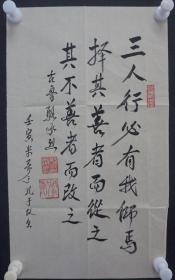 三人行必有我師焉
择其善者而從之
其不善者而改之
古魯
壬寅